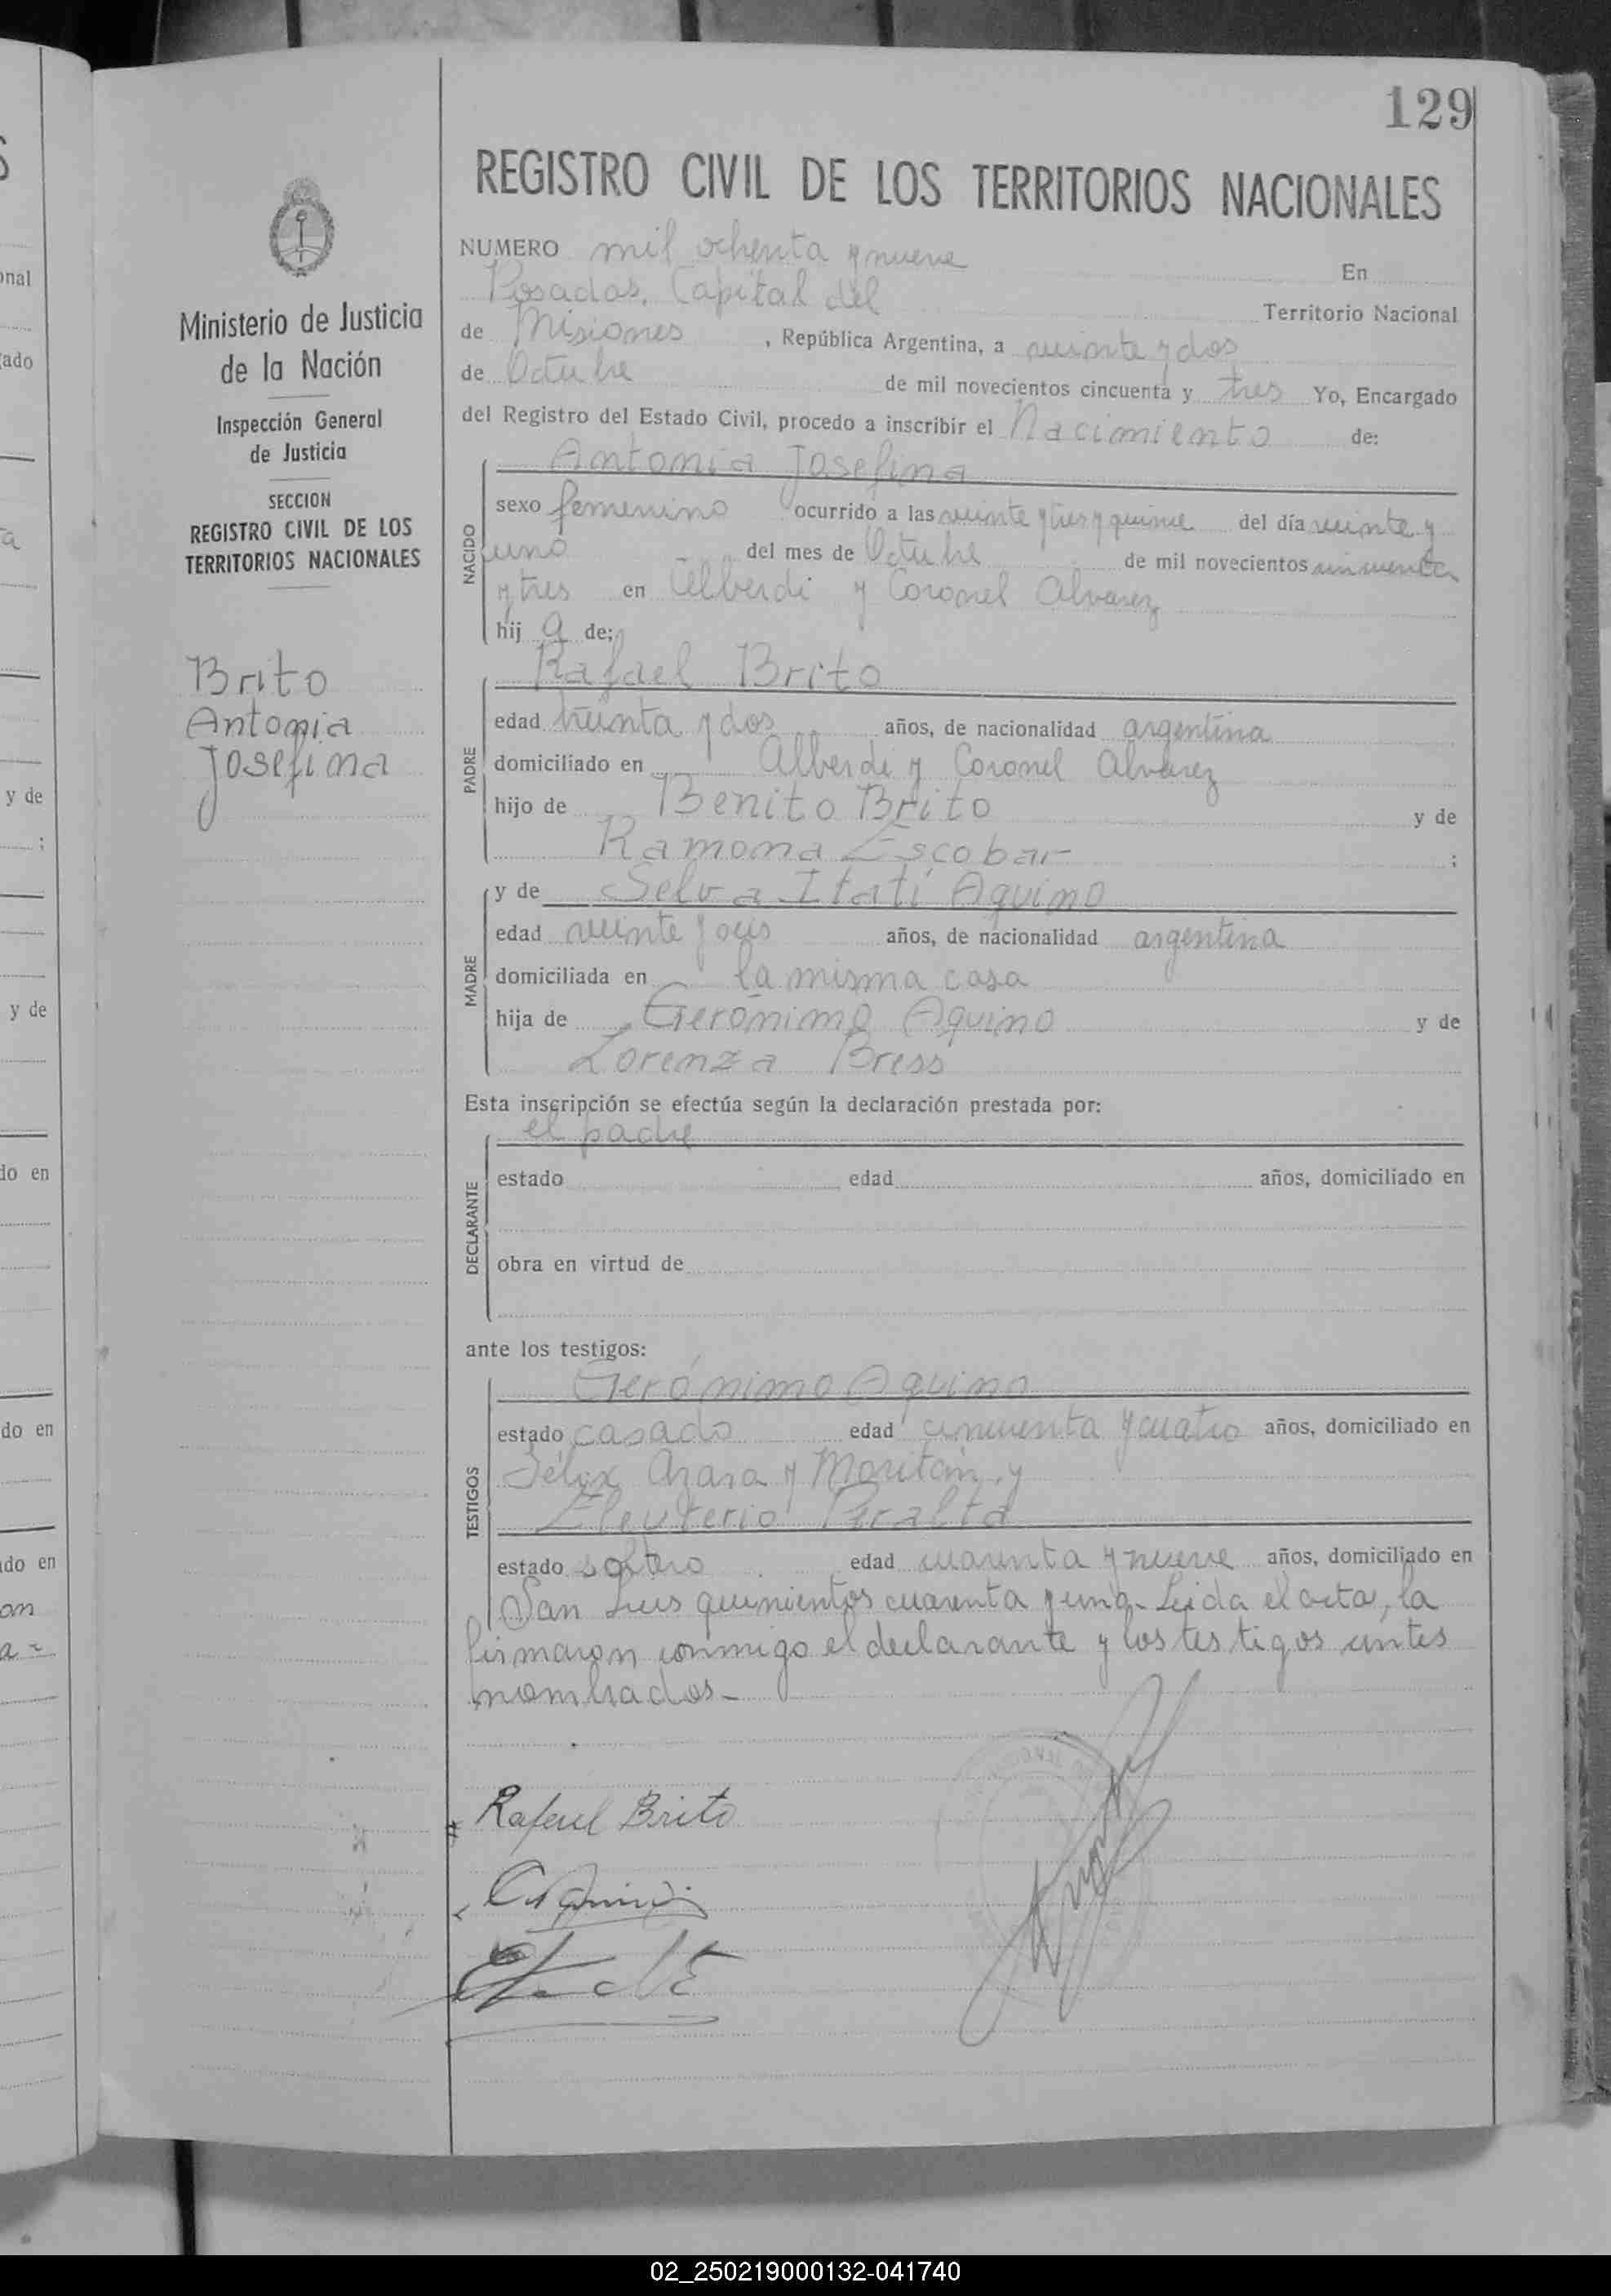 129
REGISTRO CIVIL DE LOS TERRITORIOS NACIONALES
NUMERO mil ochenta y nueve En
Posadas, Capital del Territorio Nacional
de Misiones, República Argentina, a veinte y dos
de Octubre de mil novecientos cincuenta y tres Yo, Encargado
del Registro del Estado Civil, procedo a inscribir el Nacimiento de:
NACIDO
Antonia Josefina
sexo femenino ocurrido a las veinte y tres y quince del día veinte y
uno del mes de Octubre de mil novecientos cincuenta
y tres en Alberdi y Coronel Alvarez
hija de:
PADRE
Rafael Brito
edad treinta y dos años, de nacionalidad argentina
domiciliado en Alberdi y Coronel Alvarez
hijo de Benito Brito y de
Ramona Escobar ;
MADRE
y de Selva Itatí Aquino
edad veinte y seis años, de nacionalidad argentina
domiciliada en la misma casa
hija de Gerónimo Aquino y de
Lorenza Bress
Esta inscripción se efectúa según la declaración prestada por:
DECLARANTE
el padre
estado edad años, domiciliado en
obra en virtud de
ante los testigos:
TESTIGOS
Gerónimo Aquino
estado casado edad cincuenta y cuatro años, domiciliado en
Félix Azara y Moritán, y
Eleuterio Peralta
estado soltero edad cuarenta y nueve años, domiciliado en
San Luis quinientos cuarenta y uno- Leida el acta, la
firmaron conmigo el declarante y los testigos antes
nombrados-
Rafael Brito
Ministerio de Justicia
de la Nación
Inspección General
de Justicia
SECCION
REGISTRO CIVIL DE LOS
TERRITORIOS NACIONALES
Brito
Antonia
Josefina
onal
ado
y de
;
y de
do en
do en
do en
02_250219000132-041740